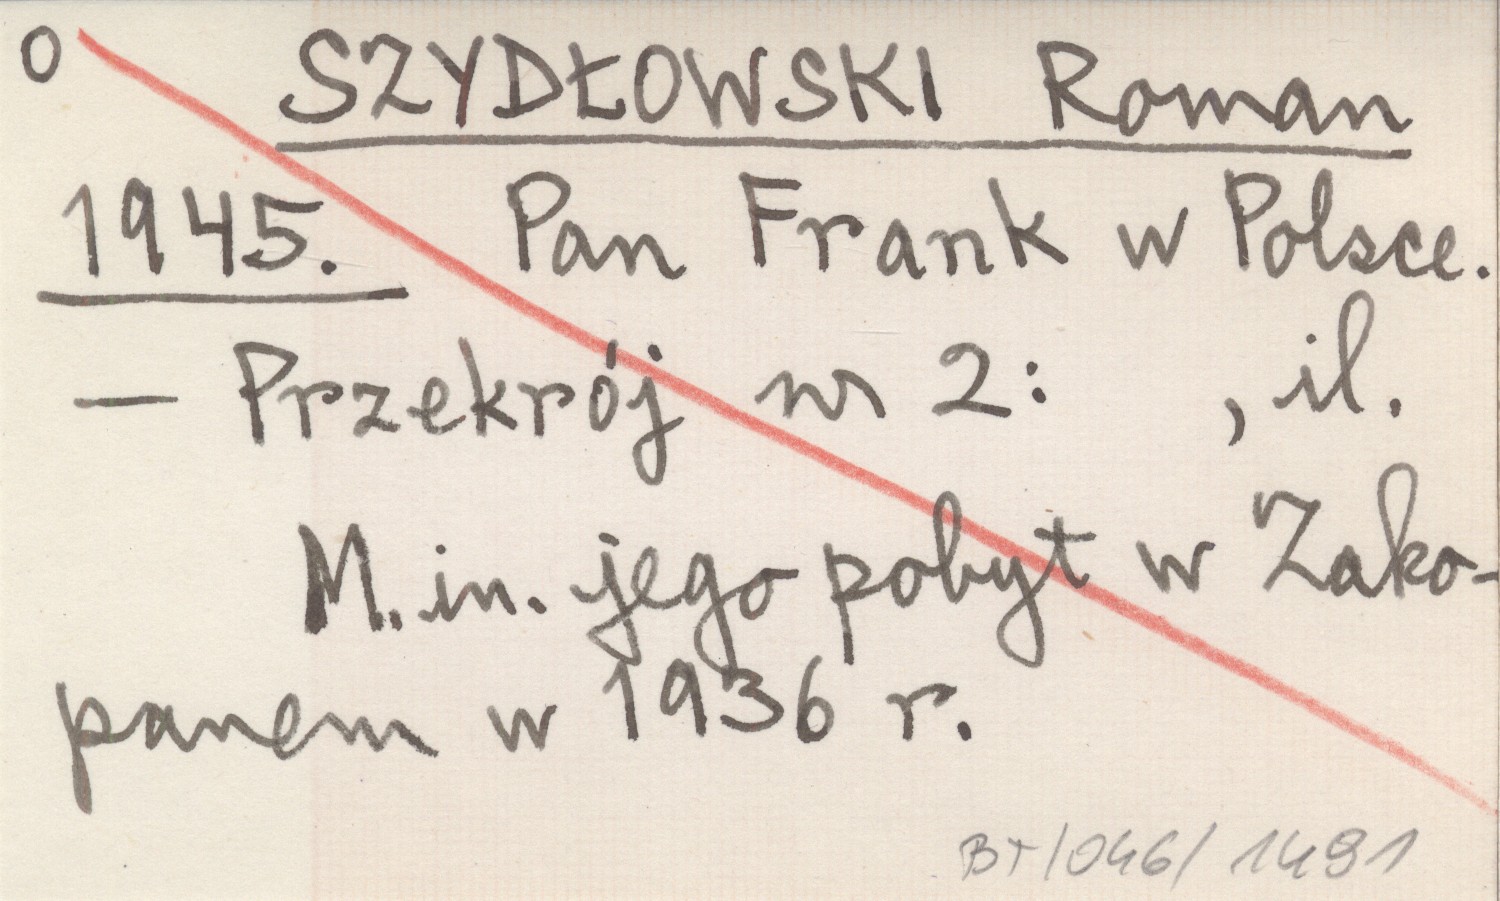 O SZYDŁOWSKI Roman
1945. Pan Frank w Polsce.
— Przekrój nr 2: , il.
M.in. jego pobyt w Zako-
panem w 1936 r.
BT/046/1491